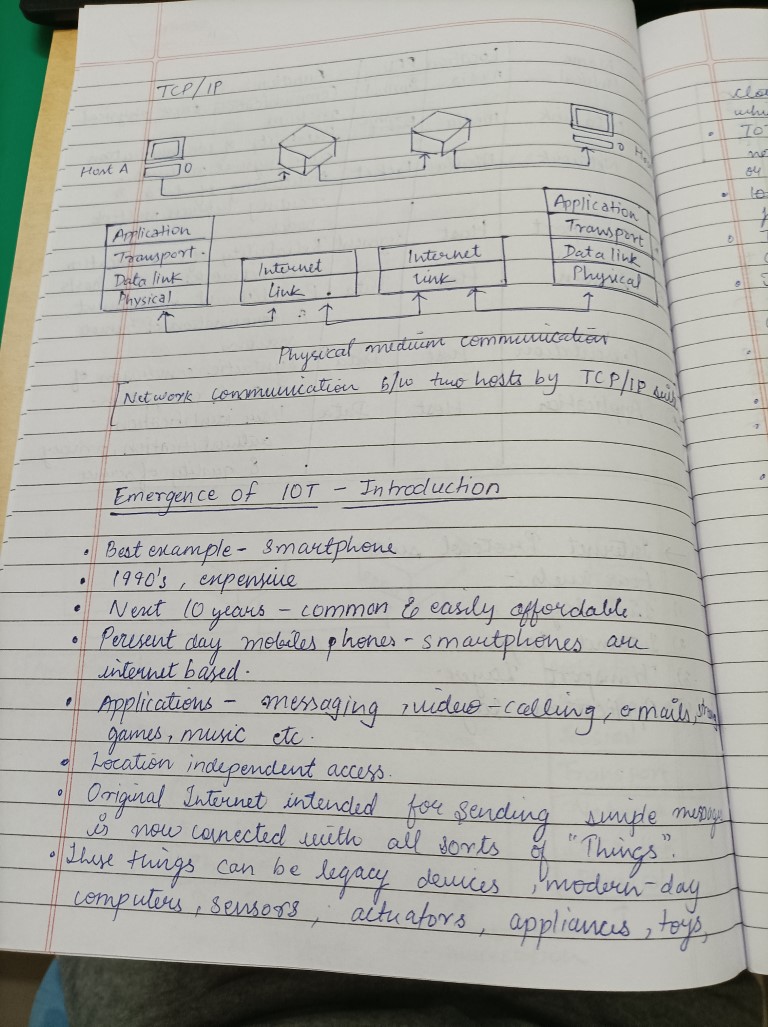 TCP/IP
Host A
Application
Transport
Data link
Physical
Internet
Link
Internet
Link
Application
Transport
Data link
Physical
Physical medium communication
Network communication b/w two hosts by TCP/IP
Emergence of IOT - Introduction
• Best example - smartphone
• 1990's, expensive
• Next 10 years - common & easily affordable.
• Persent day mobiles phones - smartphones are
internet based.
• Applications - messaging, video-calling, e-mails,
games, music etc.
• Location independent access.
• Original Internet intended for sending simple message
is now connected with all sorts of "Things".
• These things can be legacy devices, modern-day
computers, sensors, actuators, appliances, toys,